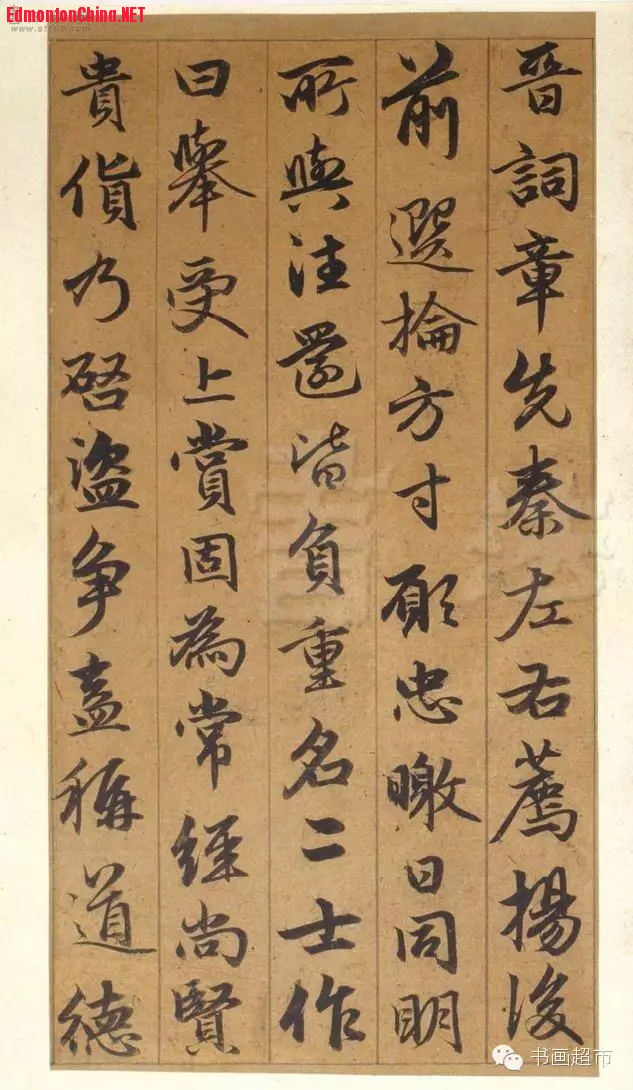 EdmontonChina.NET
晉詞章先秦左右薦揚後
前選掄方寸願忠曒日同明
所與往還皆負重名二士作
曰舉受上賞固為常經尚賢
貴貨乃啓盜争盖稱道德
书画超市